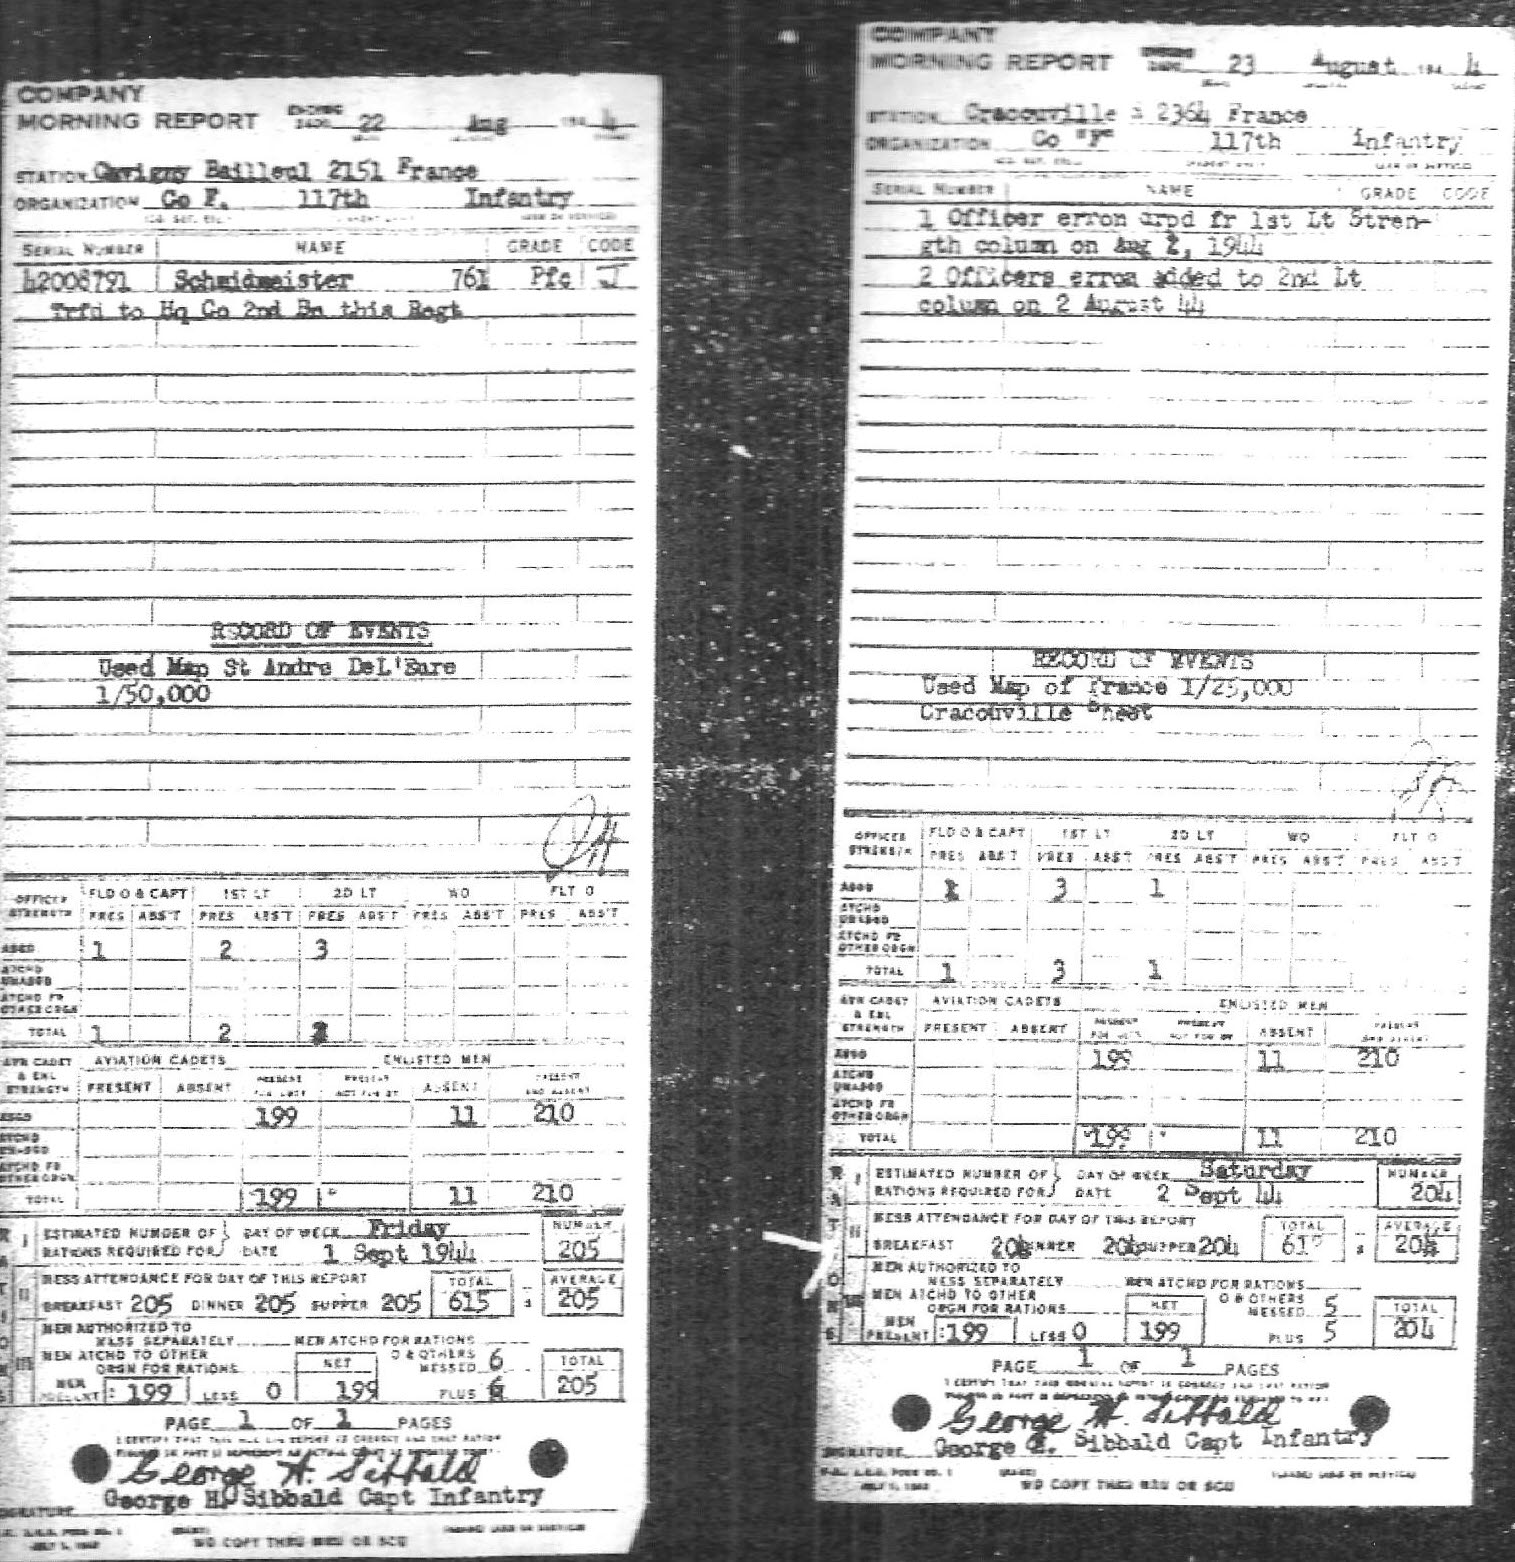 COMPANY
MORNING REPORT ENDING 22 Aug 194 4
STATION Gavigny Bailleul 2151 France
ORGANIZATION Co F. 117th Infantry
SERIAL NUMBER NAME GRADE CODE
42008791 Schmidmeister 761 Pfc J
Trfd to Hq Co 2nd Bn this Regt
RECORD OF EVENTS
Used Map St Andre DeL'Eure
1/50,000
OFFICER STRENGTH FLD O & CAPT 1ST LT 2D LT WO FLT O
PRES ABS'T PRES ABS'T PRES ABS'T PRES ABS'T PRES ABS'T
ASGD 1 2 3
ATCHD UNASGD
ATCHD FR OTHER ORGN
TOTAL 1 2
AVN CADET & ENL STRENGTH AVIATION CADETS ENLISTED MEN
PRESENT ABSENT PRESENT FOR DUTY PRESENT NOT FOR DY ABSENT PRESENT AND ABSENT
ASGD 199 11 210
ATCHD UNASGD
ATCHD FR OTHER ORGN
TOTAL 199 11 210
ESTIMATED NUMBER OF RATIONS REQUIRED FOR DAY OF WEEK Friday NUMBER
DATE 1 Sept 1944 205
MESS ATTENDANCE FOR DAY OF THIS REPORT TOTAL AVERAGE
BREAKFAST 205 DINNER 205 SUPPER 205 615 205
MEN AUTHORIZED TO
MESS SEPARATELY MEN ATCHD FOR RATIONS
MEN ATCHD TO OTHER
ORGN FOR RATIONS NET O & OTHERS MESSED 6 TOTAL
MEN PRESENT 199 LESS 0 199 PLUS 6 205
PAGE 1 OF 1 PAGES
George H. Sibbald
George H. Sibbald Capt Infantry
SIGNATURE
COMPANY
MORNING REPORT ENDING 23 August 194 4
STATION Cracouville 2364 France
ORGANIZATION Co "F" 117th infantry
SERIAL NUMBER NAME GRADE CODE
1 Officer erron drpd fr 1st Lt Stren-
gth column on Aug 2, 1944
2 Officers erron added to 2nd Lt
column on 2 August 44
RECORD OF EVENTS
Used Map of France 1/25,000
Cracouville Sheet
OFFICER STRENGTH FLD O & CAPT 1ST LT 2D LT WO FLT O
PRES ABS'T PRES ABS'T PRES ABS'T PRES ABS'T PRES ABS'T
ASGD 1 3 1
ATCHD UNASGD
ATCHD FR OTHER ORGN
TOTAL 1 3 1
AVN CADET & ENL STRENGTH AVIATION CADETS ENLISTED MEN
PRESENT ABSENT PRESENT FOR DUTY PRESENT NOT FOR DY ABSENT PRESENT AND ABSENT
ASGD 199 11 210
ATCHD UNASGD
ATCHD FR OTHER ORGN
TOTAL 199 11 210
ESTIMATED NUMBER OF RATIONS REQUIRED FOR DAY OF WEEK Saturday NUMBER
DATE 2 Sept 44 204
MESS ATTENDANCE FOR DAY OF THIS REPORT TOTAL AVERAGE
BREAKFAST 204 DINNER 204 SUPPER 204 204
MEN AUTHORIZED TO
MESS SEPARATELY MEN ATCHD FOR RATIONS
MEN ATCHD TO OTHER
ORGN FOR RATIONS NET O & OTHERS MESSED 5 TOTAL
MEN PRESENT 199 LESS 0 199 PLUS 5 204
PAGE 1 OF 1 PAGES
George H. Sibbald
SIGNATURE George H. Sibbald Capt Infantry